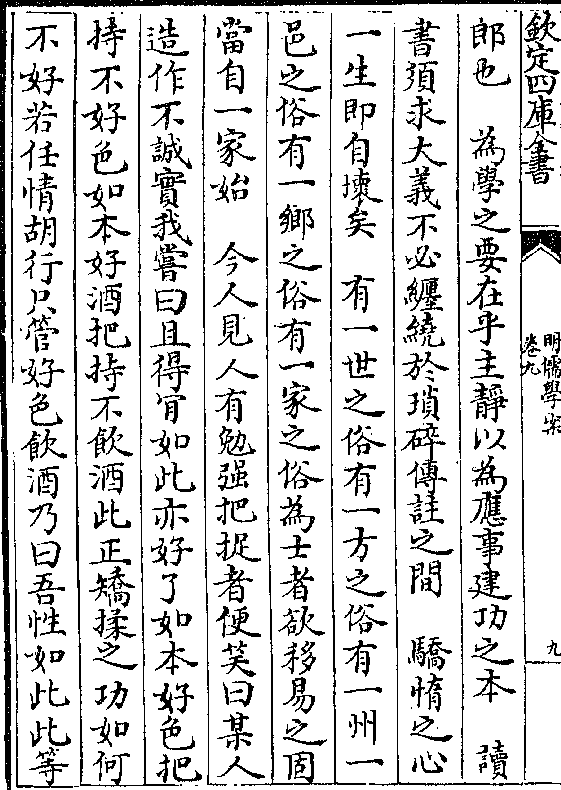 欽定四庫全書
明儒學案
卷九
九
郎也　為學之要在乎主靜以為應事建功之本　讀
書須求大義不必纏繞於瑣碎傳註之間　驕惰之心
一生即自壞矣　有一世之俗有一方之俗有一州一
邑之俗有一鄉之俗有一家之俗為士者欲移易之固
當自一家始　今人見人有勉强把捉者便笑曰某人
造作不誠實我嘗曰且得肎如此亦好了如本好色把
持不好色如本好酒把持不飲酒此正矯揉之功如何
不好若任情胡行只管好色飲酒乃曰吾性如此此等